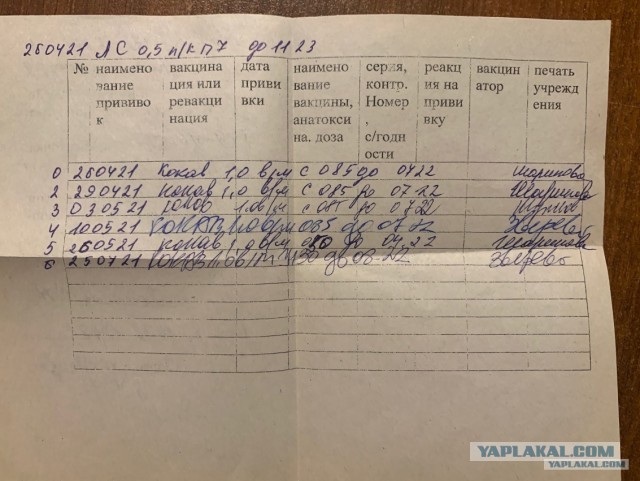 260421 ЛС 0,5 п/к п7 до 11 23
№ наименование прививок
вакцинация или ревакцинация
дата прививки
наименование вакцины, анатоксина. доза
серия, контр. Номер, с/годности
реакция на прививку
вакцинатор
печать учреждения
0 260421 Кокав 1,0 в/м с 085 до 0422
2 290421 кокав 1,0 в/м с 085 до 07 22
3 030521 1.0 в/м с 085 до 0722
4 100521 КОКАВ 1,0 в/м 085 до 07 22 Зверева
5 260521 кокав 1,0 в/м до 04,22
6 250721 КОКАВ 1,0 в/м до 03-22 Зверева
YAPLAKAL.COM
YAPLAKAL.COM